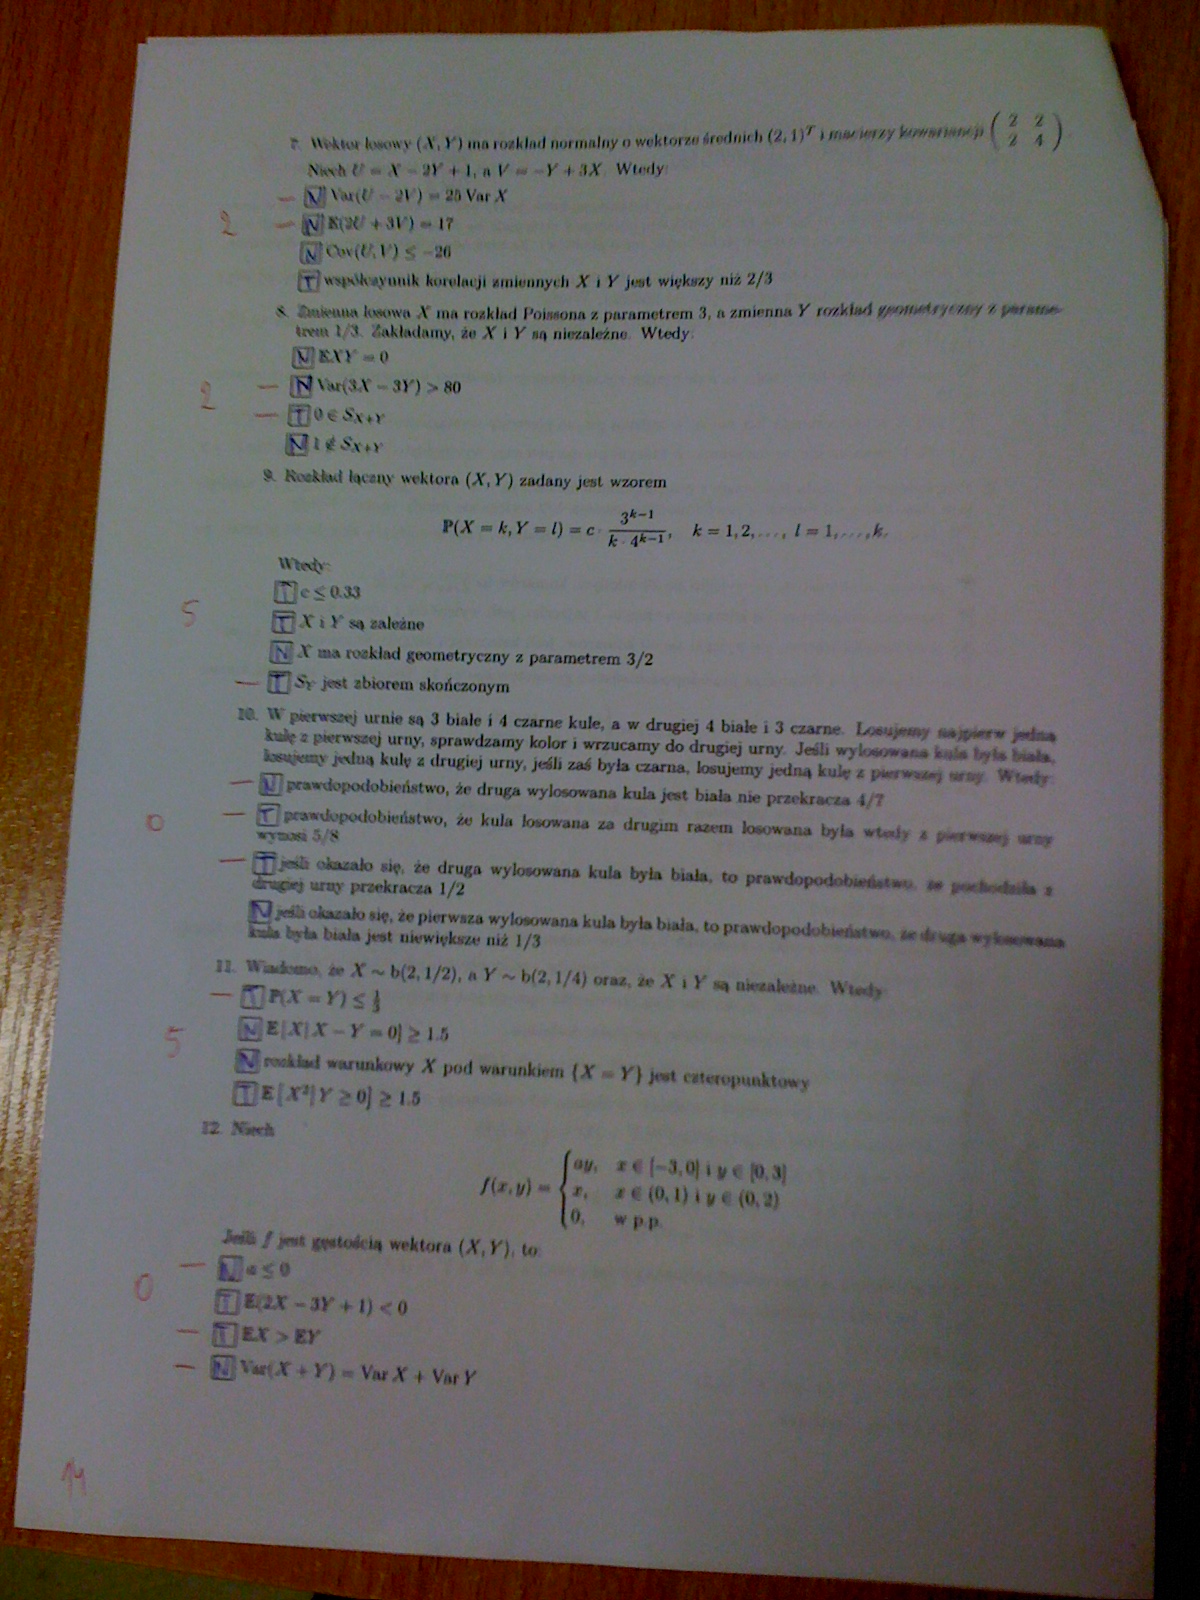 7. Wektor losowy (X, Y) ma rozkład normalny o wektorze średnich (2, 1)^T i macierzy kowariancji ( 2 2 / 2 4 )
Niech U = X − 2Y + 1, a V = −Y + 3X. Wtedy:
— N Var(U − 2V) = 25 Var X
2 — N E(2U + 3V) = 17
N Cov(U, V) ≤ −26
T współczynnik korelacji zmiennych X i Y jest większy niż 2/3
8. Zmienna losowa X ma rozkład Poissona z parametrem 3, a zmienna Y rozkład geometryczny z parame-
trem 1/3. Zakładamy, że X i Y są niezależne. Wtedy:
N EXY = 0
2 — N Var(3X − 3Y) > 80
— T 0 ∈ S_{X+Y}
N 1 ∉ S_{X+Y}
9. Rozkład łączny wektora (X, Y) zadany jest wzorem
P(X = k, Y = l) = c · 3^{k−1} / (k · 4^{k−1}), k = 1, 2, ..., l = 1, ..., k.
Wtedy:
T c ≤ 0.33
5 T X i Y są zależne
N X ma rozkład geometryczny z parametrem 3/2
— T S_Y jest zbiorem skończonym
10. W pierwszej urnie są 3 białe i 4 czarne kule, a w drugiej 4 białe i 3 czarne. Losujemy najpierw jedną
kulę z pierwszej urny, sprawdzamy kolor i wrzucamy do drugiej urny. Jeśli wylosowana kula była biała,
losujemy jedną kulę z drugiej urny, jeśli zaś była czarna, losujemy jedną kulę z pierwszej urny. Wtedy:
— N prawdopodobieństwo, że druga wylosowana kula jest biała nie przekracza 4/7
0 — T prawdopodobieństwo, że kula losowana za drugim razem losowana była wtedy z pierwszej urny
wynosi 5/8
— T jeśli okazało się, że druga wylosowana kula była biała, to prawdopodobieństwo, że pochodziła z
drugiej urny przekracza 1/2
N jeśli okazało się, że pierwsza wylosowana kula była biała, to prawdopodobieństwo, że druga wylosowana
kula była biała jest niewiększe niż 1/3
11. Wiadomo, że X ~ b(2, 1/2), a Y ~ b(2, 1/4) oraz, że X i Y są niezależne. Wtedy
— T P(X = Y) ≤ 1/3
5 N E[X|X − Y = 0] ≥ 1.5
N rozkład warunkowy X pod warunkiem {X = Y} jest czteropunktowy
T E[X²|Y ≥ 0] ≥ 1.5
12. Niech
f(x, y) = { ay, x ∈ [−3, 0] i y ∈ [0, 3]
x, x ∈ (0, 1) i y ∈ (0, 2)
0, w p.p.
Jeśli f jest gęstością wektora (X, Y), to:
— N a ≤ 0
0 T E(2X − 3Y + 1) < 0
— T EX > EY
— N Var(X + Y) = Var X + Var Y
14